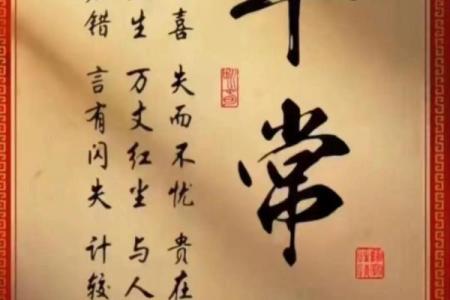 常
喜 失而不忧 贵在
生 万丈红尘 与人
错 言有闪失 计较